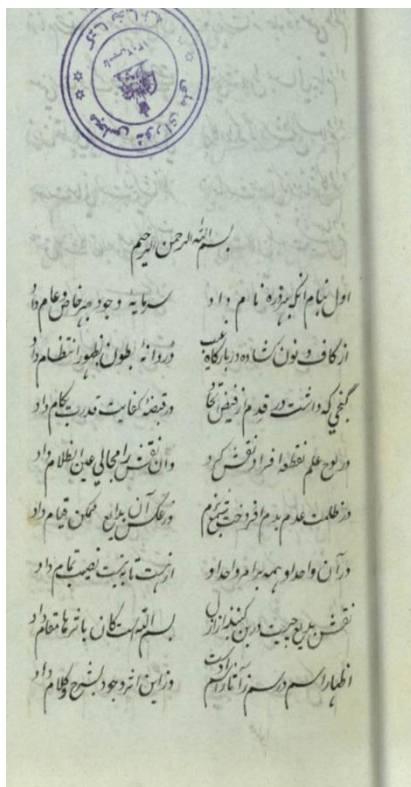 کتابخانه مجلس شورای ملی
بسم الله الرحمن الرحیم
اول بنام انکه بهر ذره نام داد سرمایه وجود بهر خاص و عام داد
از کاف و نون گشاده در بارگاه غیب دردانه بطون بظهور انتظام داد
گنجی که داشت در قدم از فیض در قبضه کفایت قدرت بکام داد
در لوح علم نقطه افراد نقش کرد وان نقش را مجالی عین
در ظلمت عدم بدم افروخت شمع بزم وز عکس آن بدایع ممکن قیام داد
در آن واحد او همه را امر واحد او از هست تا به نیست نصیب تمام داد
نقش بدیع چیست درین گنبد ازل بسم الله است کان باثرها مقام داد
اظهار اسم در رسم ز آثار اسم اوست وز این اثر وجود بشرح و کلام داد